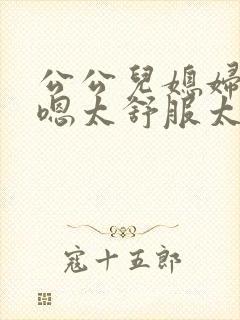 公公兒媳婦
嗯太舒服太
寇十五郎